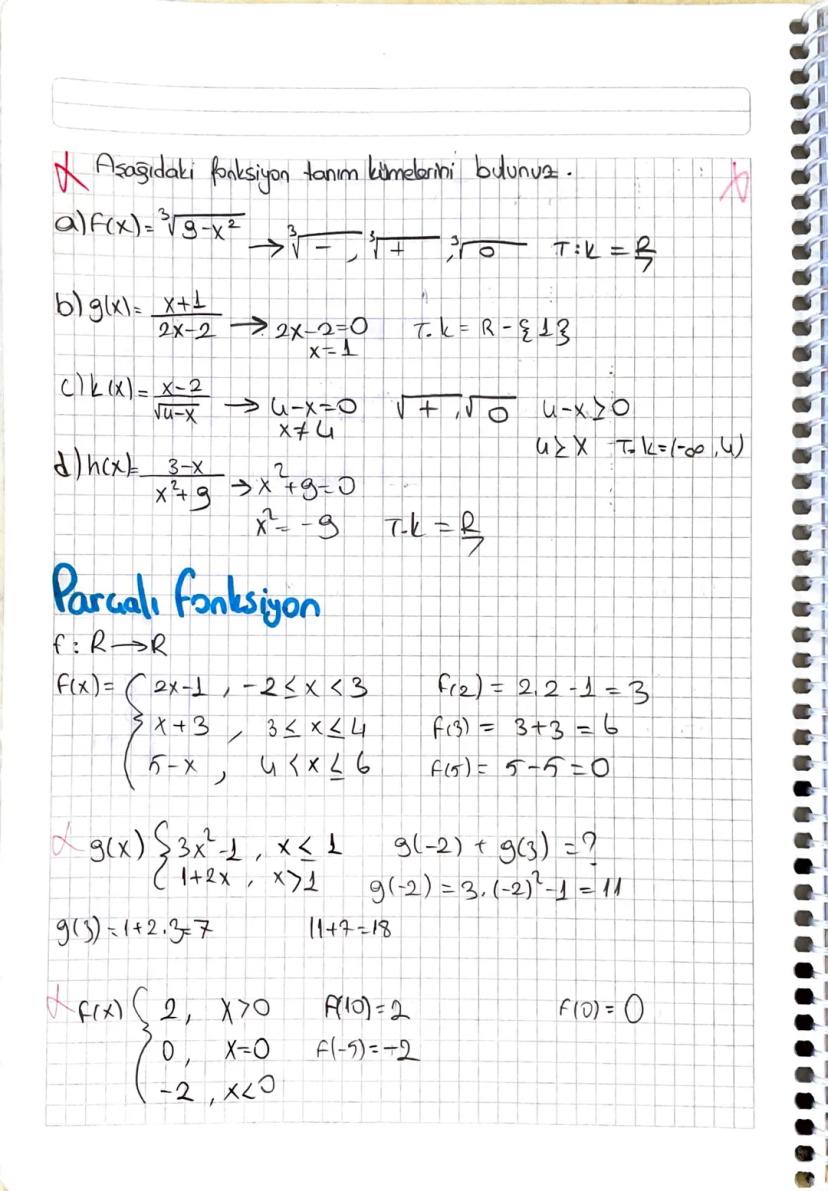 Aşağıdaki fonksiyon tanım kümelerini bulunuz.
a) f(x) = ³√9-x² → ³√- , ³√+ , ³√0 T.k = R
b) g(x) = x+1 / 2x-2 → 2x-2=0 T.k = R - {1}
x=1
c) k(x) = x-2 / √4-x → 4-x=0 √+ , √0 4-x≥0
x≠4 4≥x T.k=(-∞,4)
d) h(x) = 3-x / x²+9 → x²+9=0
x²=-9 T.k = R
Parçalı fonksiyon
f: R→R
f(x) = { 2x-1 , -2≤x<3 f(2) = 2.2-1 = 3
x+3 , 3≤x≤4 f(3) = 3+3 = 6
5-x , 4<x≤6 f(5) = 5-5=0
g(x) { 3x²-1 , x≤1 g(-2) + g(3) = ?
1+2x , x>1 g(-2) = 3.(-2)²-1 = 11
g(3) = 1+2.3=7 11+7=18
f(x) { 2, x>0 f(10)=2 f(0)=0
0, x=0 f(-5)=-2
-2, x<0